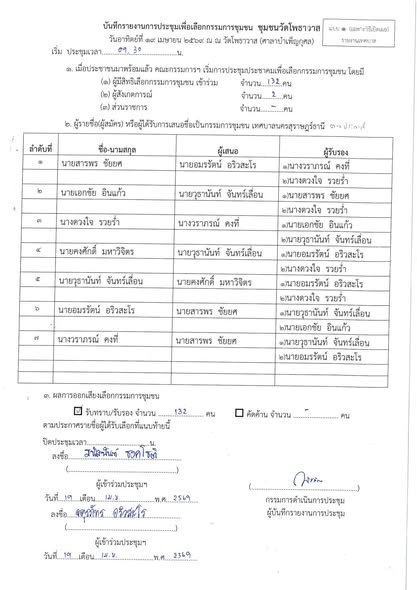 บันทึกรายงานการประชุมเพื่อเลือกกรรมการชุมชน ชุมชนวัดโพธาวาส
แบบ ๑ (เฉพาะวิธีเปิดเผย)
รายงานเทศบาล
วันอาทิตย์ที่ ๑๙ เมษายน ๒๕๖๙ ณ วัดโพธาวาส (ศาลาบำเพ็ญกุศล)
เริ่ม ประชุมเวลา 09.30 น.
๑. เมื่อประชาชนมาพร้อมแล้ว คณะกรรมการฯ เริ่มการประชุมประชาคมเพื่อเลือกกรรมการชุมชน โดยมี
(๑) ผู้มีสิทธิเลือกกรรมการชุมชน เข้าร่วม จำนวน 132 คน
(๒) ผู้สังเกตการณ์ จำนวน 2 คน
(๓) ส่วนราชการ จำนวน - คน
๒. ผู้รายชื่อ(ผู้สมัคร) หรือผู้ได้รับการเสนอชื่อเป็นกรรมการชุมชน เทศบาลนครสุราษฎร์ธานี
ลำดับที่ ชื่อ-นามสกุล ผู้เสนอ ผู้รับรอง
๑ นายสารพร ชัยยศ นายอมรรัตน์ อริวสะโร ๑)นางวราภรณ์ คงที่
๒)นางดวงใจ รวยร่ำ
๒ นายเอกชัย อินแก้ว นายวุธานันท์ จันทร์เลื่อน ๑)นายสารพร ชัยยศ
๒)นางดวงใจ รวยร่ำ
๓ นางดวงใจ รวยร่ำ นางวราภรณ์ คงที่ ๑)นายเอกชัย อินแก้ว
๒)นายวุธานันท์ จันทร์เลื่อน
๔ นายคงศักดิ์ มหาวิจิตร นายวุธานันท์ จันทร์เลื่อน ๑)นายอมรรัตน์ อริวสะโร
๒)นางดวงใจ รวยร่ำ
๕ นายวุธานันท์ จันทร์เลื่อน นายคงศักดิ์ มหาวิจิตร ๑)นายอมรรัตน์ อริวสะโร
๒)นางดวงใจ รวยร่ำ
๖ นายอมรรัตน์ อริวสะโร นายสารพร ชัยยศ ๑)นายวุธานันท์ จันทร์เลื่อน
๒)นายเอกชัย อินแก้ว
๗ นางวราภรณ์ คงที่ นายสารพร ชัยยศ ๑)นายวุธานันท์ จันทร์เลื่อน
๒)นายอมรรัตน์ อริวสะโร
๓. ผลการออกเสียงเลือกกรรมการชุมชน
รับทราบ/รับรอง จำนวน 132 คน คัดค้าน จำนวน - คน
ตามประกาศรายชื่อผู้ได้รับเลือกที่แนบท้ายนี้
ปิดประชุมเวลา น.
ลงชื่อ
ผู้เข้าร่วมประชุมฯ
วันที่ 19 เดือน เม.ย. พ.ศ. 2569
กรรมการดำเนินการประชุม
ลงชื่อ อริวสะโร
ผู้บันทึกรายงานการประชุม
ผู้เข้าร่วมประชุมฯ
วันที่ 19 เดือน เม.ย. พ.ศ. 2569